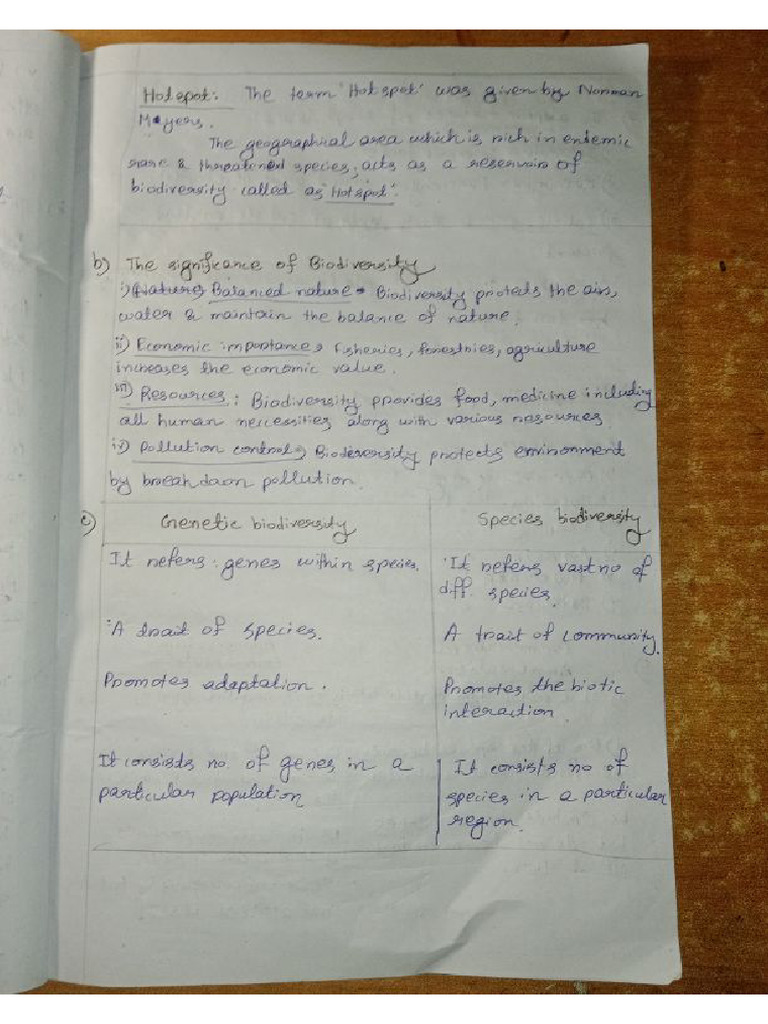 Hotspot: The term 'Hotspot' was given by Norman
Mayers.
The geographral area which is rich in endemic
rare & threatened species, acts as a reservoir of
biodiversity called as "Hotspot".
b) The significance of Biodiversity
i) Nature Balanced nature → Biodiversity protects the air,
water & maintain the balance of nature.
ii) Economic importance → Fisheries, forestries, agriculture
increases the economic value.
iii) Resources : Biodiversity provides food, medicine including
all human neccessities along with various resources
iv) Pollution control → Biodiversity protects environment
by breakdown pollution.
c) Genetic biodiversity Species biodiversity
It refers : genes within species. It refers vast no of
diff. species.
A trait of species. A trait of community.
Promotes adaptation. Promotes the biotic
interaction.
It consists no of genes in a It consists no of
particular population species in a particular
region.